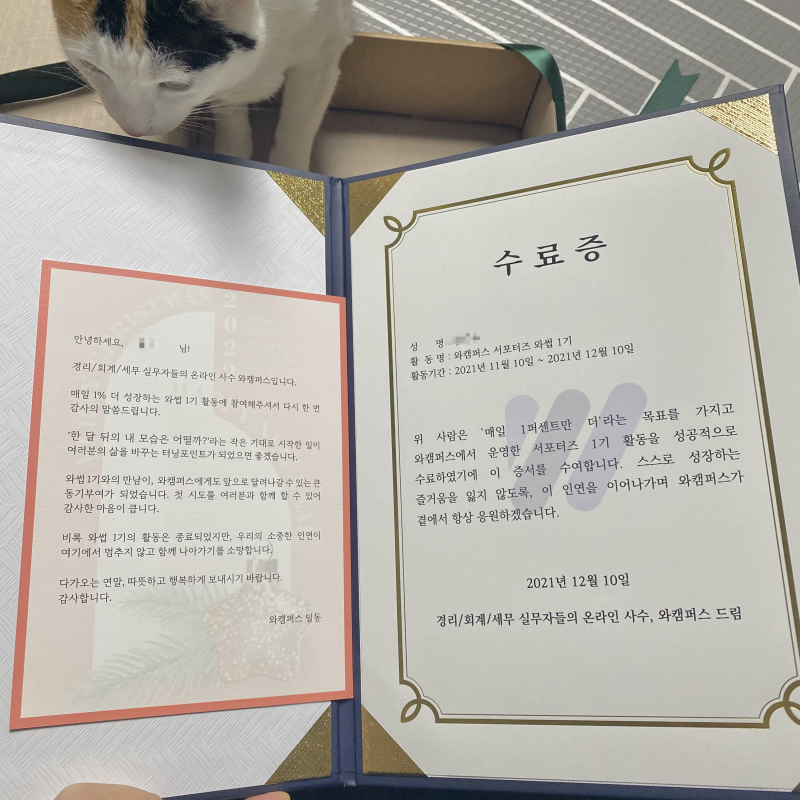 안녕하세요, 님!
경리/회계/세무 실무자들의 온라인 사수 와캠퍼스입니다.
매일 1% 더 성장하는 와썹 1기 활동에 참여해주셔서 다시 한 번
감사의 말씀드립니다.
'한 달 뒤의 내 모습은 어떨까?'라는 작은 기대로 시작한 일이
여러분의 삶을 바꾸는 터닝포인트가 되었으면 좋겠습니다.
와썹 1기와의 만남이, 와캠퍼스에게도 앞으로 달려나갈 수 있는 큰
동기부여가 되었습니다. 첫 시도를 여러분과 함께 할 수 있어
감사한 마음이 큽니다.
비록 와썹 1기의 활동은 종료되었지만, 우리의 소중한 인연이
여기에서 멈추지 않고 함께 나아가기를 소망합니다.
다가오는 연말, 따뜻하고 행복하게 보내시기 바랍니다.
감사합니다.
와캠퍼스 일동
수료증
성 명
활 동 명 : 와캠퍼스 서포터즈 와썹 1기
활동기간 : 2021년 11월 10일 ~ 2021년 12월 10일
위 사람은 '매일 1퍼센트만 더'라는 목표를 가지고
와캠퍼스에서 운영한 서포터즈 1기 활동을 성공적으로
수료하였기에 이 증서를 수여합니다. 스스로 성장하는
즐거움을 잃지 않도록, 이 인연을 이어나가며 와캠퍼스가
곁에서 항상 응원하겠습니다.
2021년 12월 10일
경리/회계/세무 실무자들의 온라인 사수, 와캠퍼스 드림